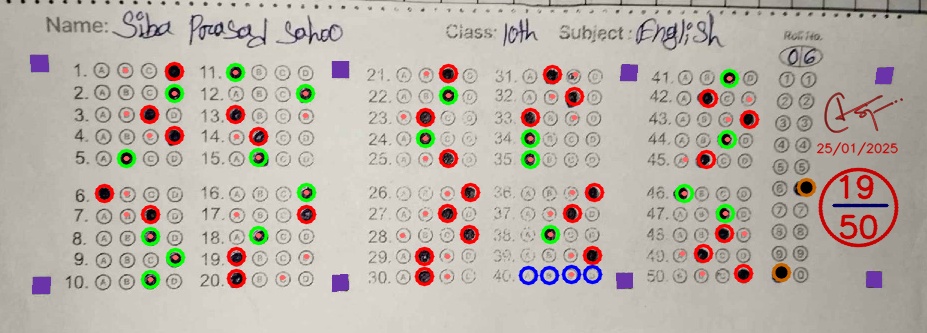 Name: Siba Prasad Sahoo Class: 10th Subject: English Roll No.
06
1. A C
2. A B C
3. A D
4. A B
5. A C D
6. B C D
7. A B D
8. A B D
9. A B C
10. A B D
11. B C D
12. A B C
13. B C D
14. A C D
15. A C D
16. A B C
17. B C
18. A C D
19. B C D
20. B D
21. A D
22. A B D
23. A C D
24. A C D
25. A D
26. A B
27. A D
28. B C
29. A C D
30. A C D
31. A D
32. A B D
33. B C D
34. B C D
35. B C D
36. A B
37. A D
38. A C D
39. A B
40.
41. A B D
42. A C
43. A B
44. A B D
45. C D
46. B C D
47. A B D
48. A B D
49. A C D
50. A C
1 1
2 2
3 3
4 4
5 5
6
7 7
8 8
9 9
0
25/01/2025
19
50